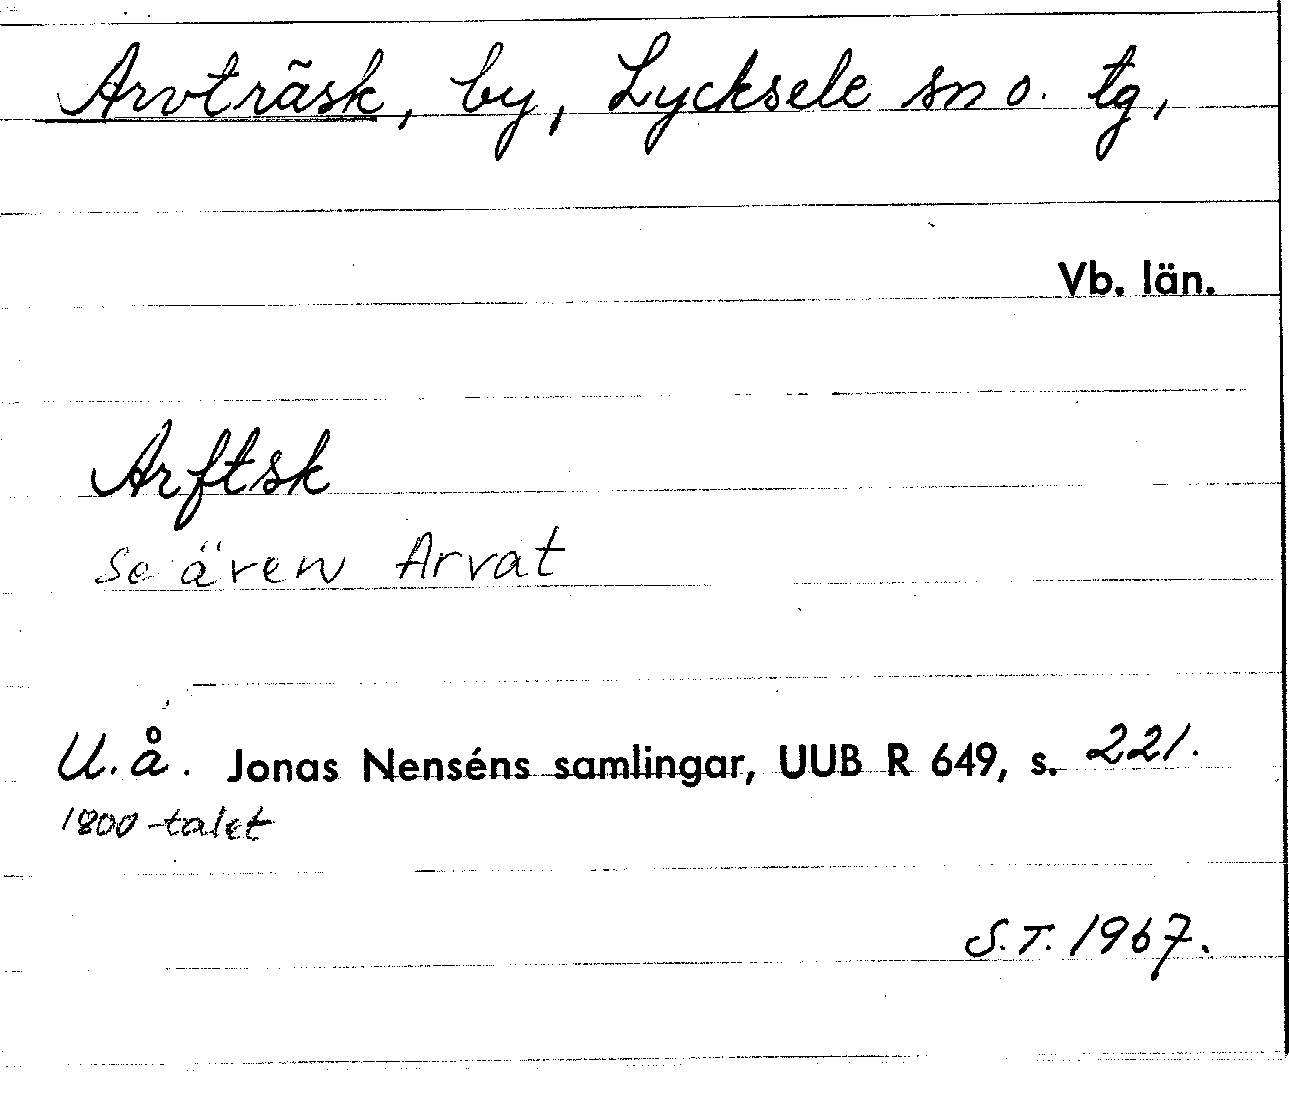 Arvträsk, by, Lycksele sn o. tg,
Vb. län.
Arftsk
se även Arvat
U.å. Jonas Nenséns samlingar, UUB R 649, s. 221.
1800-talet
S.T. 1967.